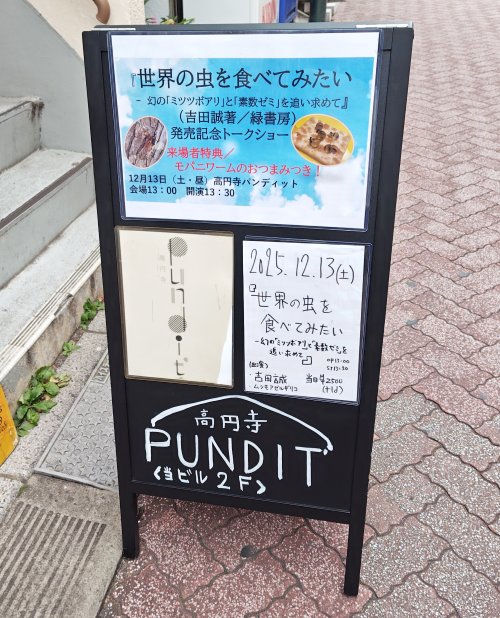 『世界の虫を食べてみたい
- 幻の「ミツツボアリ」と「素数ゼミ」を追い求めて』
（吉田誠著／緑書房）
発売記念トークショー
来場者特典／
モパニワームのおつまみつき！
12月13日（土・昼）高円寺パンディット
会場13：00　開演13：30
高円寺
pundit'
2025.12.13(土)
『世界の虫を
食べてみたい
-幻の"ミツツボアリ"と"素数ゼミ"を
追い求めて』
OP13:00
ST13:30
(出演)
吉田誠
ムシモアゼルギリコ
当日¥2500
(+1d)
高円寺
PUNDIT'
<当ビル2F>